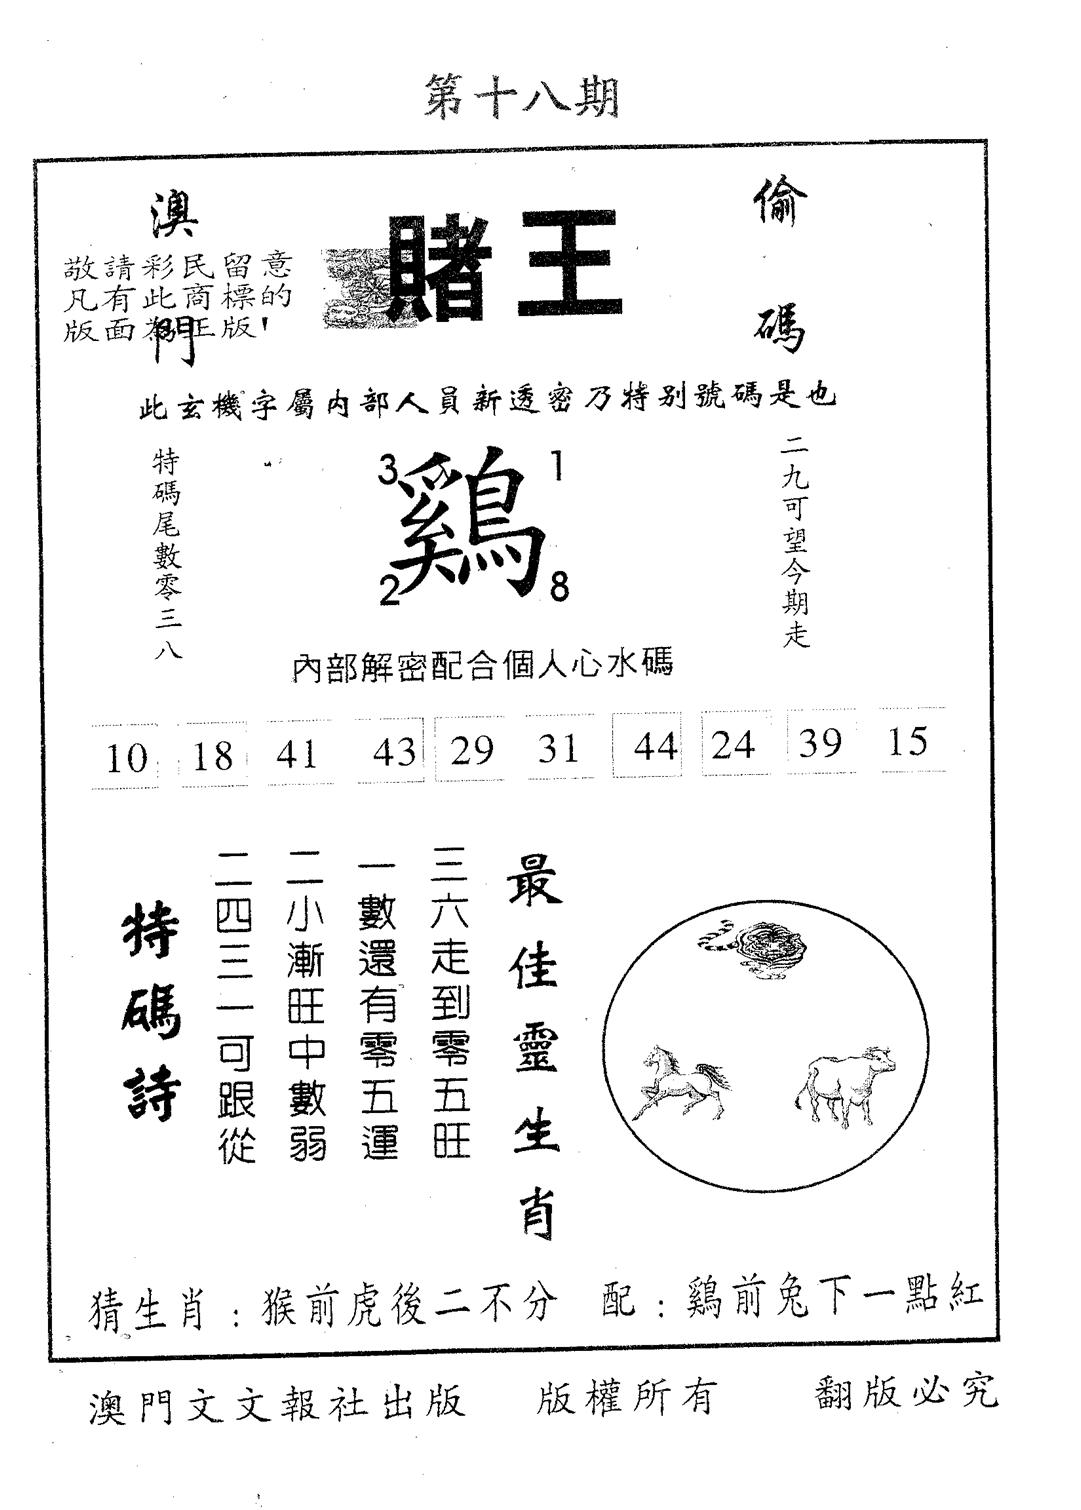 第十八期
澳門
賭王
偷碼
敬請彩民留意
凡有此商標的
版面為正版！
此玄機字屬内部人員新透密乃特别號碼是也
特碼尾數零三八
3 1
鷄
2 8
二九可望今期走
內部解密配合個人心水碼
10 18 41 43 29 31 44 24 39 15
最佳靈生肖
三六走到零五旺
一數還有零五運
二小漸旺中數弱
二四三一可跟從
特碼詩
猜生肖：猴前虎後二不分 配：鷄前兔下一點紅
澳門文文報社出版 版權所有 翻版必究